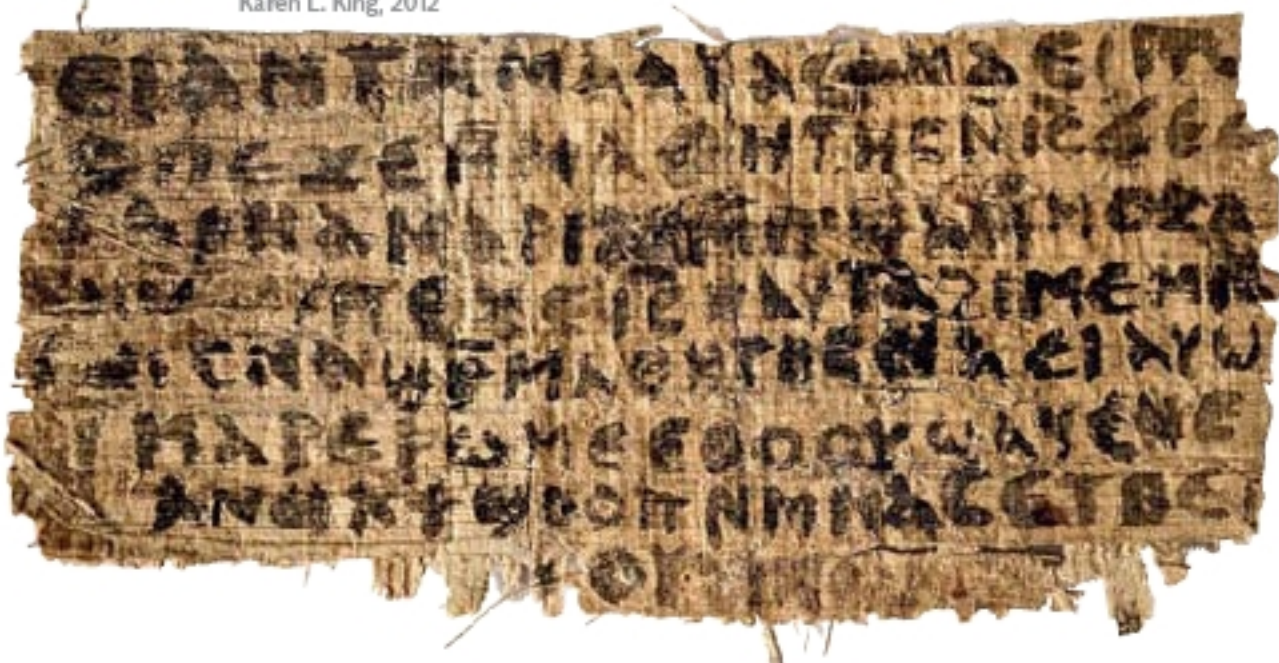 Karen L. King, 2012
ⲉⲓ ⲁⲛ ⲧⲁⲙⲁⲁⲩ ⲁⲥϯ ⲛⲁⲉⲓ
ⲥ ⲡⲉϫⲉ ⲙⲙⲁⲑⲏⲧⲏⲥ ⲛ̄ⲓ̄ⲥ̄ ϫⲉ
ⲁⲣⲛⲁ ⲙⲁⲣⲓⲁⲙ
ⲡⲉϫⲉ ⲓ̄ⲥ̄ ⲛⲁⲩ ⲧⲁϩⲓⲙⲉ ⲙⲛ
ⲥⲛⲁϣⲣ̄ⲙⲁⲑⲏⲧⲏⲥ ⲛⲁⲉⲓ ⲁⲩⲱ
ⲓ ⲙⲁⲣⲉⲣⲱⲙⲉ ⲉⲑⲟⲟⲩ ϣⲁϥⲉ ⲛⲉ
ⲁⲛⲟⲕ ϯϣⲟⲟⲡ ⲛⲙⲙⲁⲥ ⲉⲧⲃⲉ